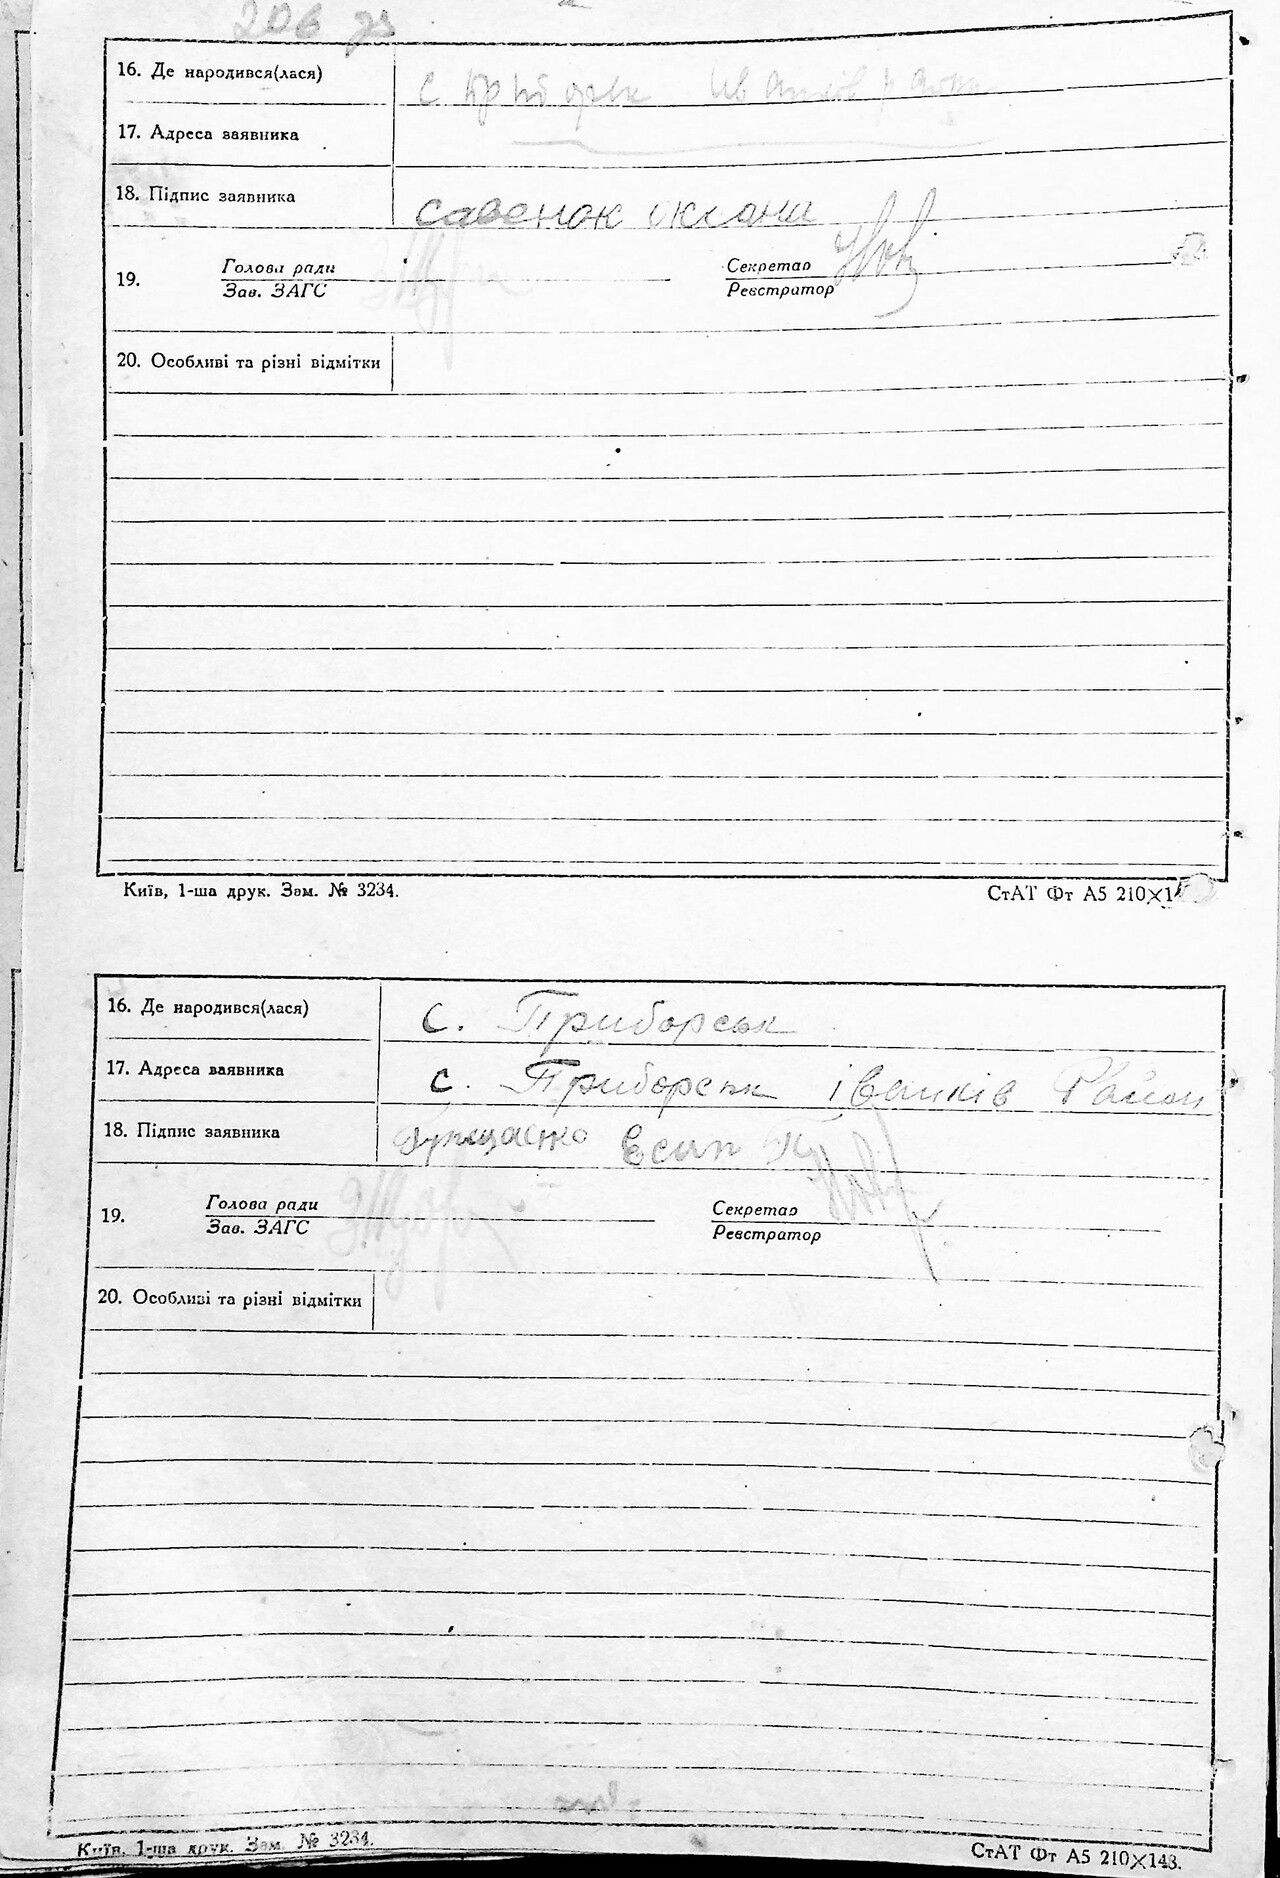 206 зв
16. Де народився(лася)
17. Адреса заявника
18. Підпис заявника савенок оксана
19. Голова ради Секретар
Зав. ЗАГС Реєстратор
20. Особливі та різні відмітки
Київ, 1-ша друк. Зам. № 3234. СтАТ Фт А5 210×1
16. Де народився(лася) с. Приборськ
17. Адреса заявника с. Приборськ іванків Район
18. Підпис заявника Есип
19. Голова ради Секретар
Зав. ЗАГС Реєстратор
20. Особливі та різні відмітки
Київ, 1-ша друк. Зам. № 3234. СтАТ Фт А5 210×148.